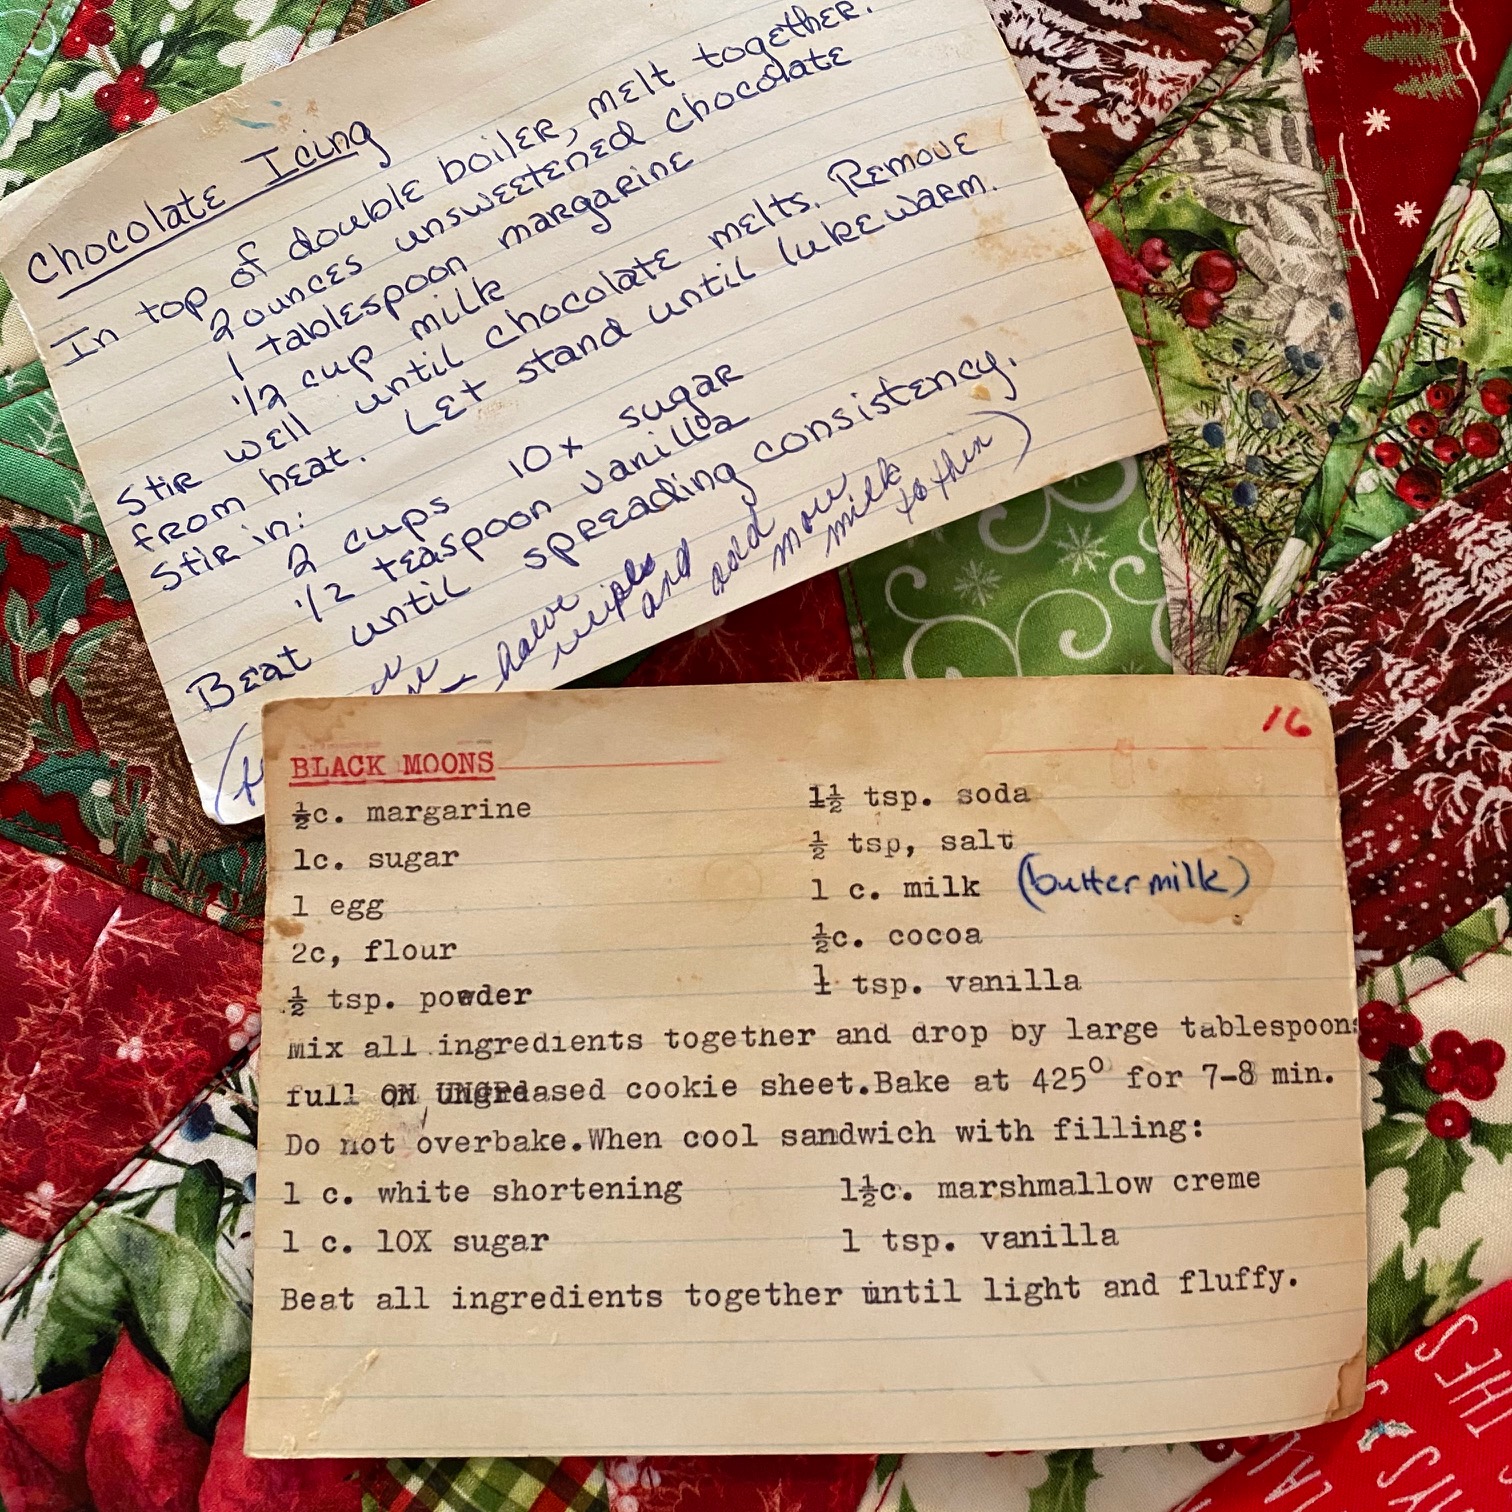 Chocolate Icing
In top of double boiler, melt together.
2 ounces unsweetened chocolate
1 tablespoon margarine
1/2 cup milk
Stir well until chocolate melts. Remove
from heat. Let stand until lukewarm.
Stir in:
2 cups 10x sugar
1/2 teaspoon vanilla
Beat until spreading consistency.
have
and add more
milk
to thin)
16
BLACK MOONS
½c. margarine
1c. sugar
1 egg
2c, flour
½ tsp. powder
1½ tsp. soda
½ tsp, salt
1 c. milk (buttermilk)
½c. cocoa
1 tsp. vanilla
mix all ingredients together and drop by large tablespoons
full ON UNGReased cookie sheet.Bake at 425° for 7-8 min.
Do not overbake.When cool sandwich with filling:
1 c. white shortening
1 c. 10X sugar
1½c. marshmallow creme
1 tsp. vanilla
Beat all ingredients together until light and fluffy.